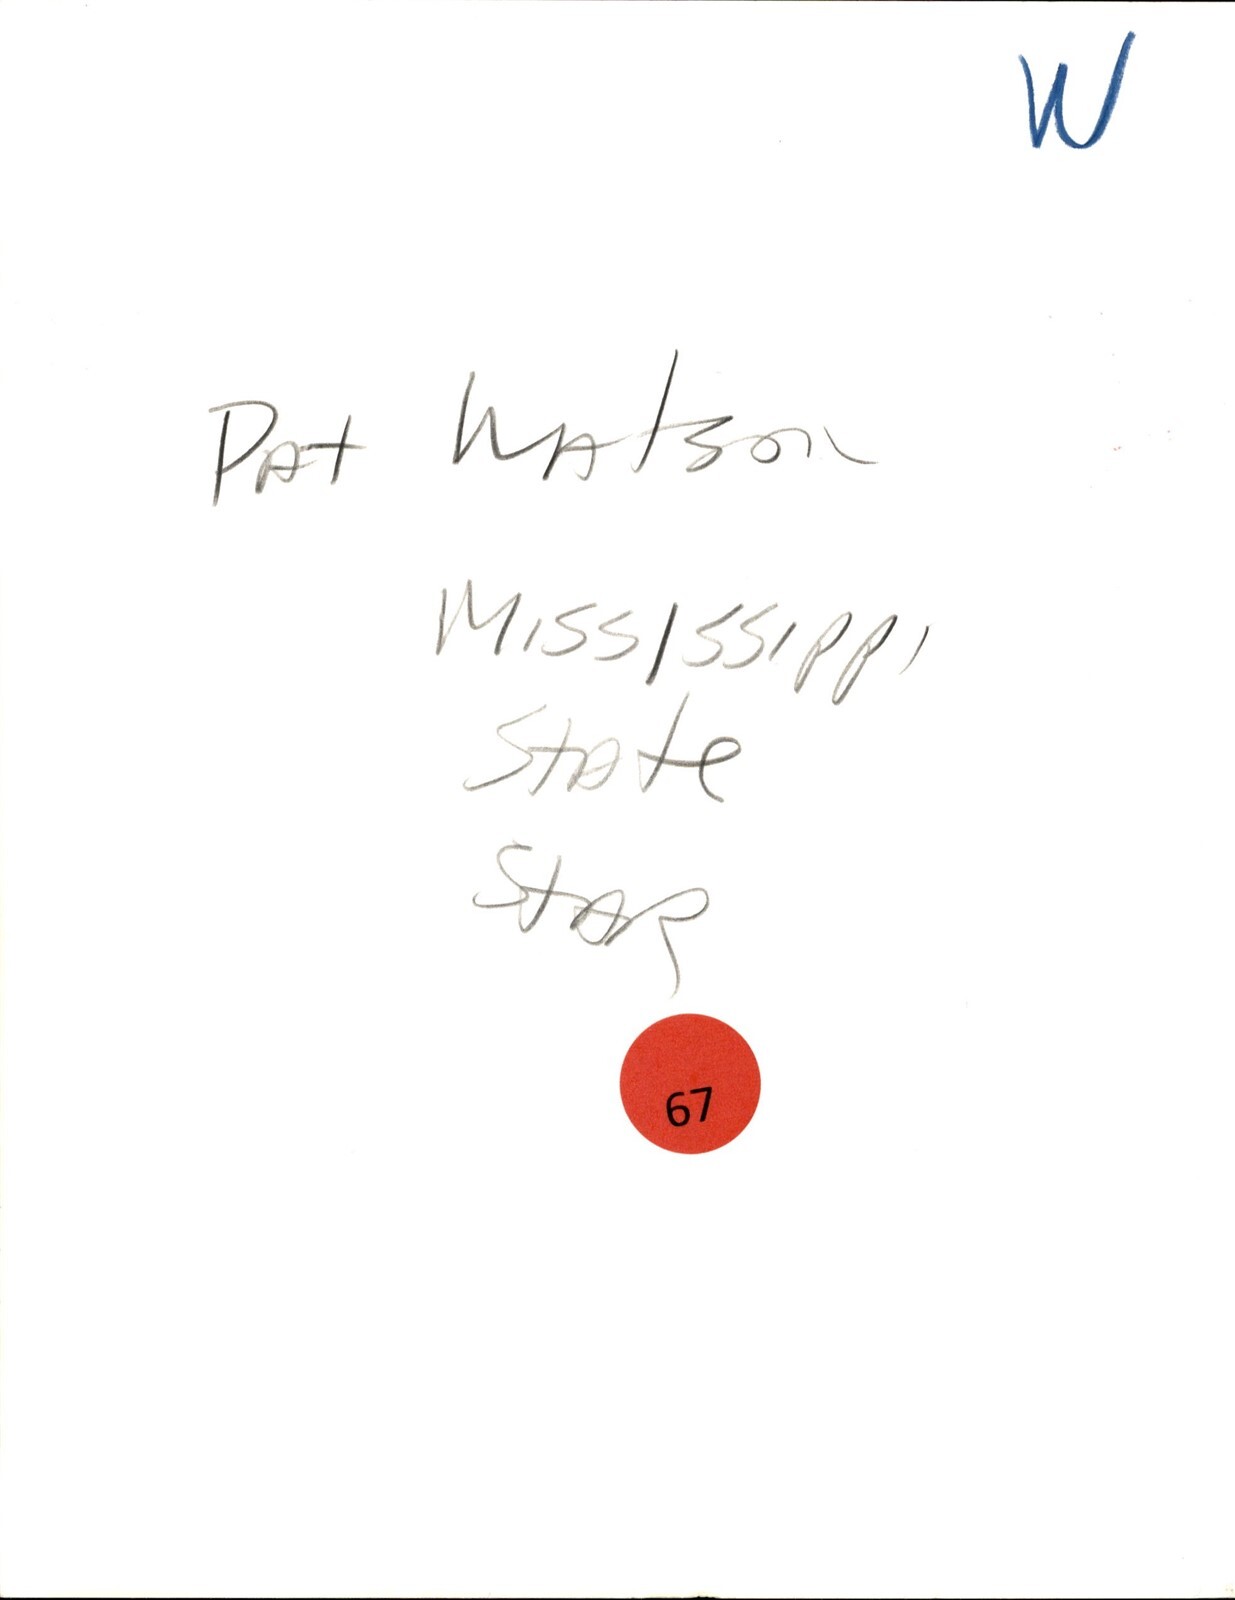 W
Pat Watson
Mississippi
State
Star
67